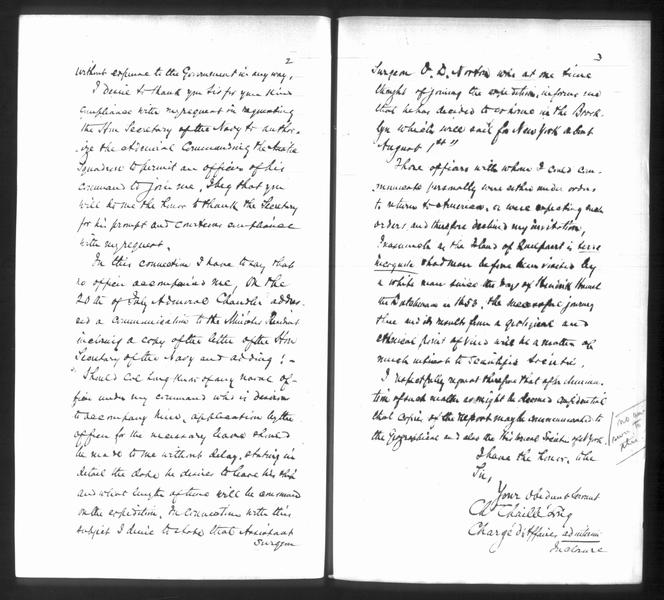 2
without expense to the Government in any way.
I desire to thank you Sir for your kind
compliance with my request in requesting
the Hon Secretary of the Navy to author-
ize the Admiral Commanding the Asiatic
Squadron to permit an officer of his
command to join me, I beg that you
will do me the honor to thank the Secretary
for his prompt and courteous compliance
with my request.
In this connection I have to say that
no officer accompanied me, On the
20th of July Admiral Chandler address-
ed a communication to the Minister Resident
inclosing a copy of the letter of the Hon
Secretary of the Navy and adding:—
"Should Col Long know of any naval of-
ficer under my command who is desirous
to accompany him, application by the
officer for the necessary leave should
be made to me without delay, stating in
detail the date he desires to leave his ship
and what length of time will be consumed
on the expedition. In connection with this
subject I desire to state that Assistant
Surgeon
3
Surgeon O. D. Norton who at one time
thought of joining the expedition, informs me
that he has decided to go home in the Brook-
lyn which will sail for New York about
August 1st"
Those officers with whom I could com-
municate personally were either under orders
to return to America, or were expecting such
orders, and therefore declined my invitation,
Inasmuch as the Island of Quelpart is terra
incognita and has never before been visited by
a white man since the days of Hendrick Hamel
the Dutchman in 1653, the
journey
and its results from a geological and
ethnical point of view will be a matter of
much interest to Scientific Societies.
I respectfully request therefore that after elimina-
tion of such matter as might be deemed confidential
that copies of the report may be communicated to
the Geographical and also the Historical Society of N York.
I have the honor to be
Sir,
Your Obedient Servant
Ch Chaillé Long
Chargé d'Affaires ad interim
Inclosure